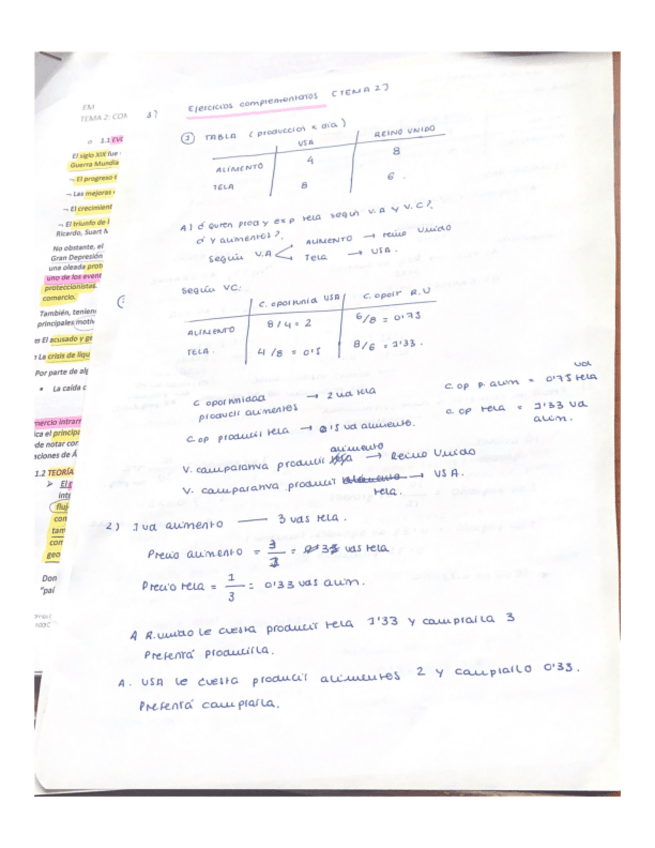 EM
TEMA 2: COM
3)
Ejercicios complementarios (TEMA 2)
1.1 EVO
El siglo XIX fue
Guerra Mundia
→ El progreso t
→ Las mejoras
→ El crecimient
→ El triunfo de l
Ricardo, Stuart M
No obstante, el
Gran Depresión
una oleada prot
uno de los event
proteccionistas.
comercio.
También, tenien
principales motiv
El acusado y ge
La crisis de liqu
Por parte de alg
• La caída c
mercio intrarr
ica el principa
de notar cor
aciones de A
1.2 TEORÍA
flujo
con
tam
com
geo
Don
"paí
1) TABLA (produccion x dia)
USA REINO UNIDO
ALIMENTO 4 8
TELA 8 6.
A) ¿ Quien prod y exp tela según V.A y V.C?.
¿ y alimentos?.
Según V.A < ALIMENTO → reino Unido
Tela → USA.
Según VC:
C. oportunid USA C. oport R.U
ALIMENTO 8/4 = 2 6/8 = 0'75
TELA. 4/8 = 0'5 8/6 = 1'33.
C oportunidad
producir alimentos → 2 ud tela
C. op producir tela → 0'5 ud alimento.
C. op p. alim = 0'75 ud tela
C. op tela = 1'33 ud
alim.
V. comparativa producir alimento → Reino Unido
V. comparativa producir tela. → USA.
2) 1 ud alimento —— 3 uds tela.
Precio alimento = 3/1 = 3 uds tela
Precio tela = 1/3 = 0'33 uds alim.
A R.unido le cuesta producir tela 1'33 y comprarla 3
Preferirá producirla.
A. USA le cuesta producir alimentos 2 y comprarlo 0'33.
Preferirá comprarla.